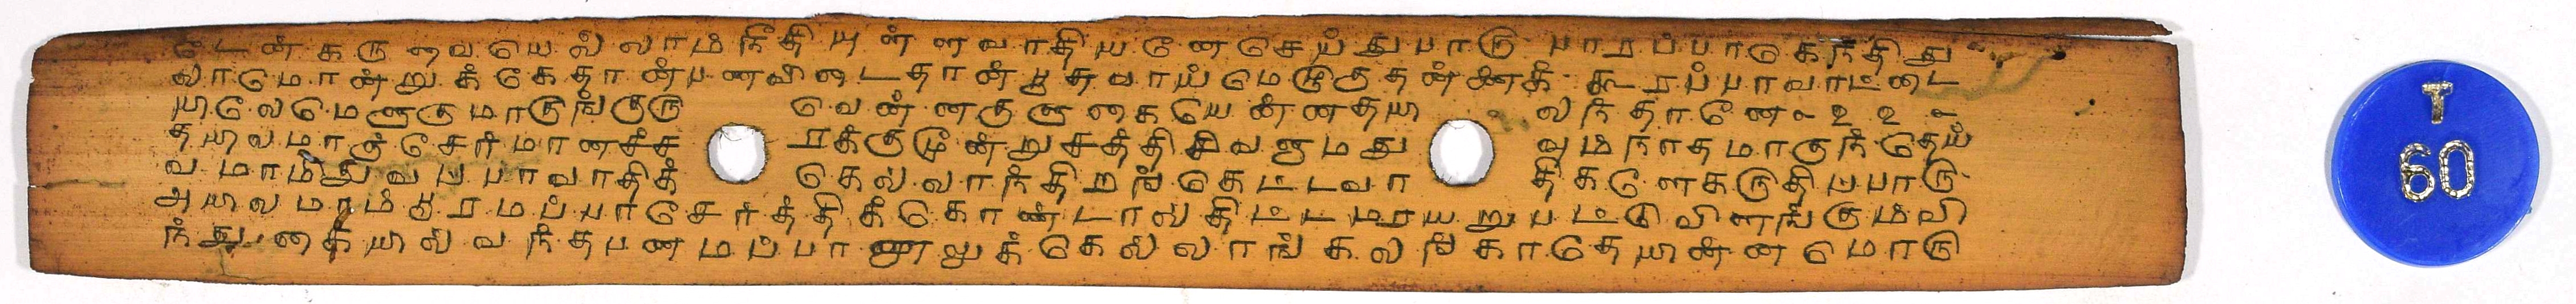 டேன் கருவை யெல்லாம் நீதியுள்ளவாதியனே செய்துபாடு பாரப்பா கெந்திது
லாமொன்றுக் கேதான்பனவிடைதான் பூசுவாய் மெழுகுதன்னைக் கூரப்பாவாட்டை
யுலேமெழுகுமாடுங்குரு வென்னகுளுகையென்னதயு லிந்தானே-உஉ-
தயுலமாகுசேர்மானச்ச ரக்குமூன்றுசத்திசிவனுமது வும்நாதமாகுந்தெய்
வமாம்துவப்பாவாதிக் கெல்லாந்திறங்கெட்டவா திகளேகருதிப்பாரு
அயுலமாம்பூரமப்பாசேர்த்திக்கொண்டாலதிட்டமாயறுபட்டுவிளங்கும்வி
ந்துகையுல்வந்தபணமப்பானுலுக்கெல்லாங்கலிங்காதேயுன்னமொரு
T
60